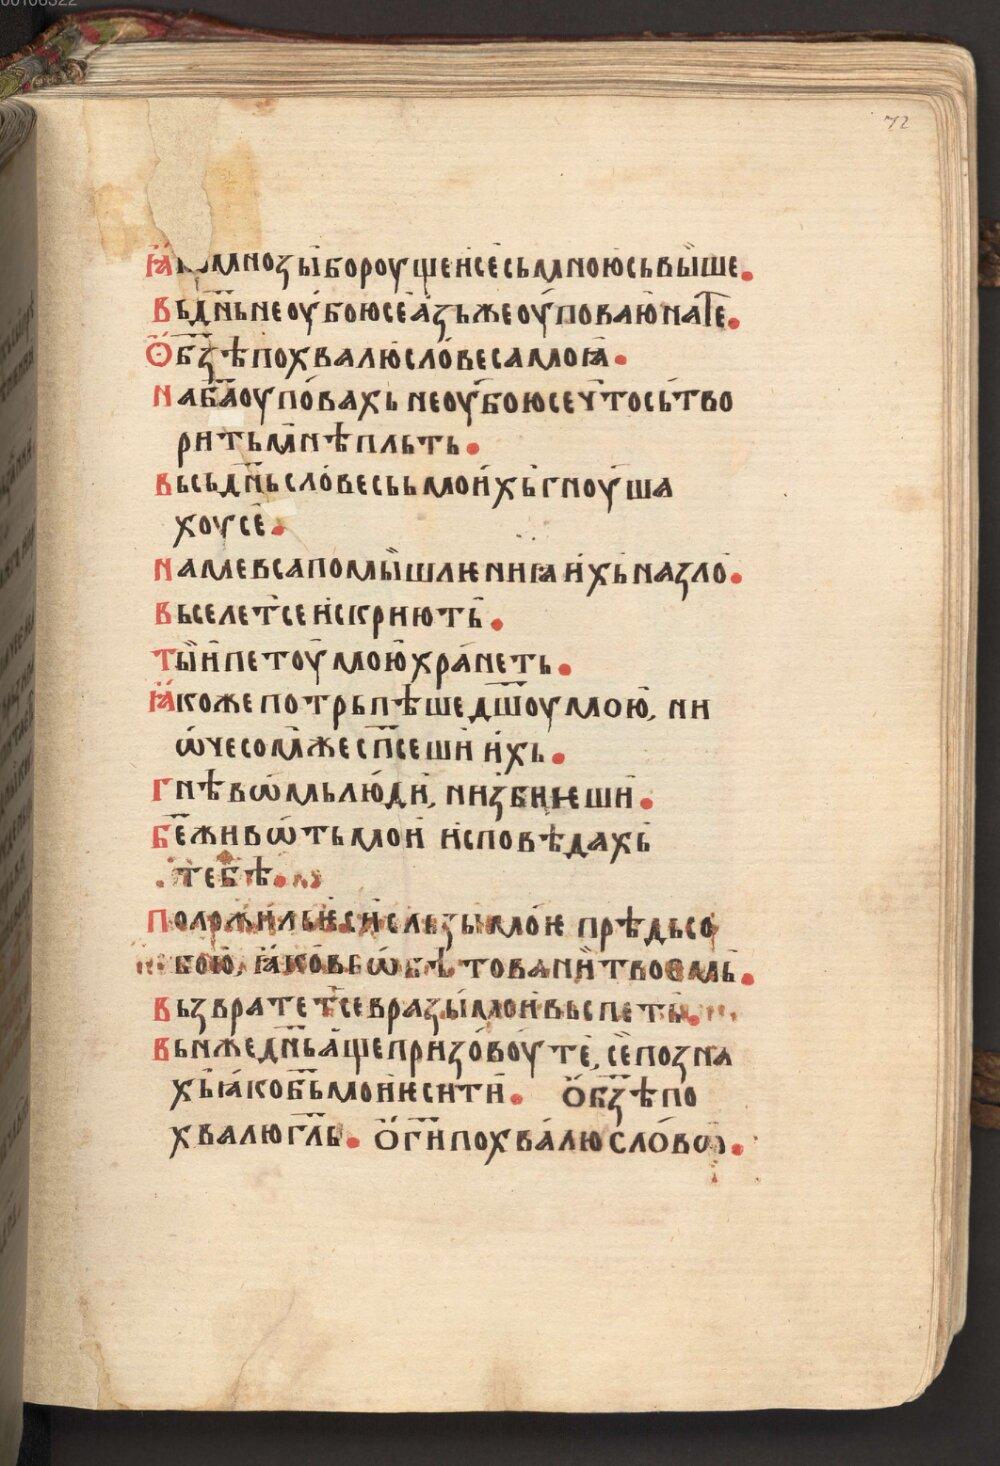 00106322
72
ꙗ҆ко мноѕы̏ бороущеи҆ се съ мною̀ съ вы̏ше.
въ дн҃ь не оу҆бою се а҆зъ же оу҆поваю̀ на те.
Ѡ҆ бз҃ѣ похвалю̀ сло́веса моꙗ.
на ба҃ оупо́вахь не оу҆бою се ч̾то сь́тво
рить мн̾ѣ пльть.
вьсь дн҃ь сло́весьь мои́хь̀ гноу҆ша
хоу се̏.
на ме вса помы̏шлѥниꙗ и́хь̀ на зло̀.
вьселет̾ се и҆ скриють̀.
ты̏ и҆ петоу҆ мою̀ хра́неть.
ꙗ҆коже потрьпѣше дш҃оу мою̀, ни
ѡ҆ чесом̾же сп҃сеши̏ и́хь.
гнѣвѡ́мь лю́ди̏, низбиѥши̏.
бе҃ живѡ́ть мои̏ и҆споведахь̀
тебѣ̀.
положи́ль ѥ҆си̏ сльзы̏ мо́ѥ прѣдь со
бою̀, ꙗ҆ко̀ вь ѡ҆бѣтованы̏ твоемь̀.
вьзврате т̾се вразы́ мои̏ вьспеть̀.
вьнже дн҃ь а҆ще призо́воу те̏, се̏ позна
хь̀ ꙗ҆ко бь҃ мои̏ ѥси ти̏. Ѡ҆ бз҃ѣ по
хвалю гл҃ь. Ѡ҆ ги҃ похва́лю сло́вѡ.